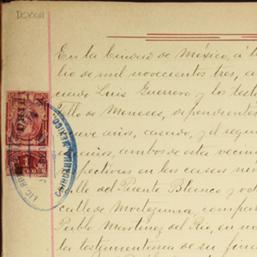 En la Ciudad de México, á l
lio de mil novecientos tres, a
cado Luis Guerrero y los test
de Meneses, dependientes
nueve años, casado, y el segun
años, ambos de esta vecin
pectivas en las casas nú
calle del Puente Blanco y od
calle de Moctezuma, compa
Pablo Martínez del Río, en no
la testamentaria de su fina